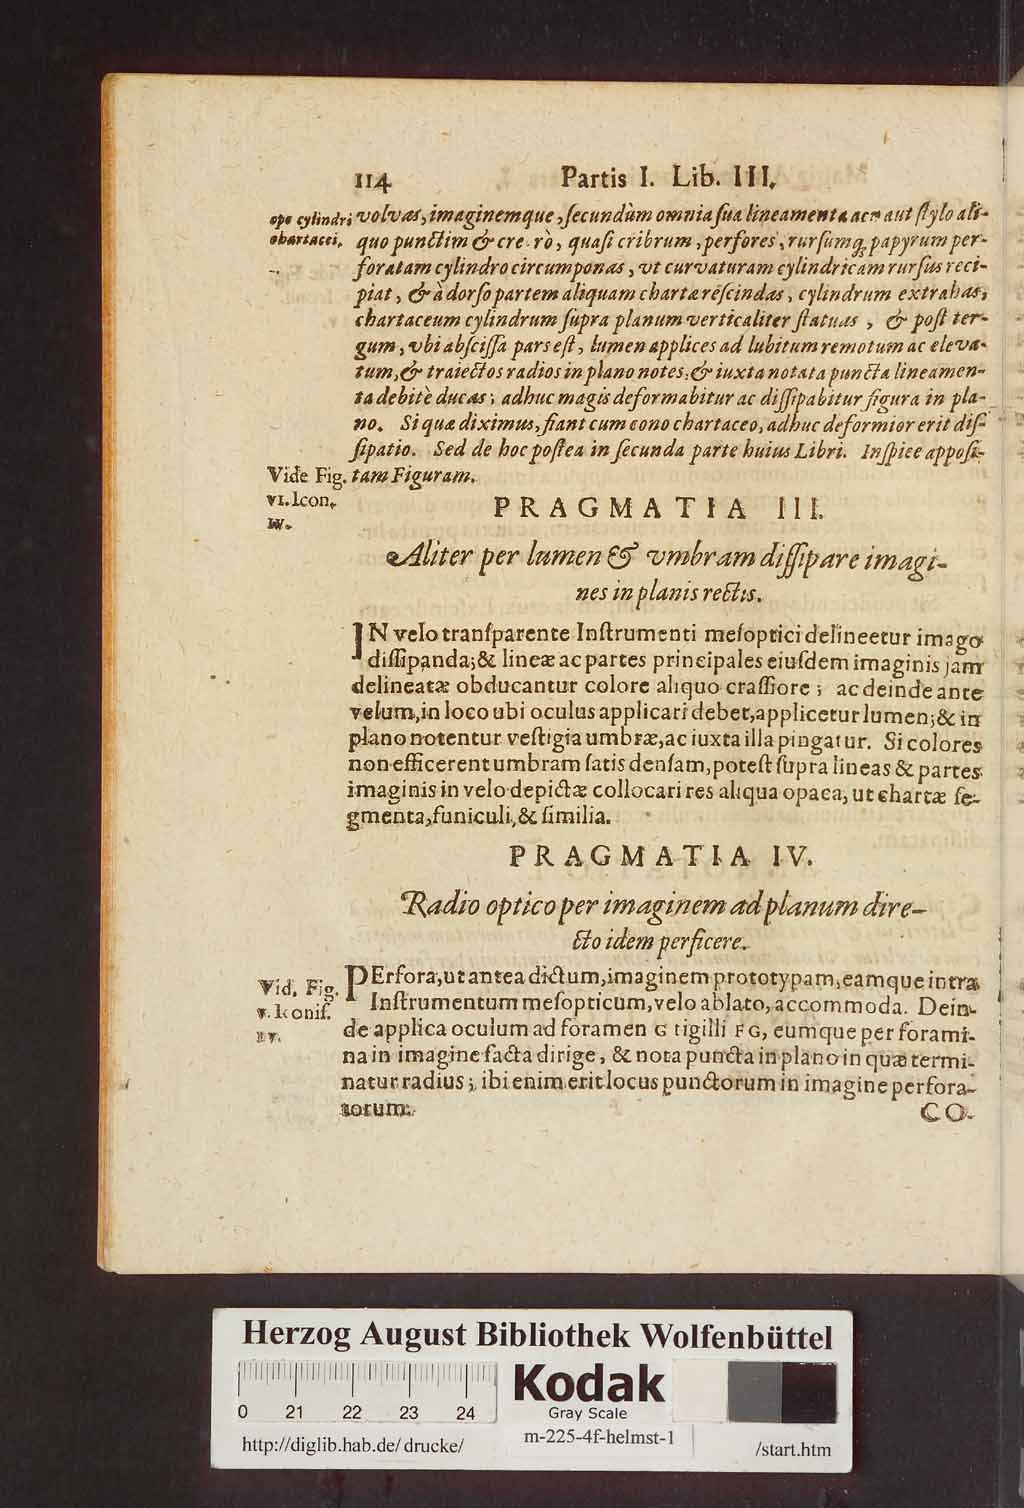 114 Partis I. Lib. III.
ope cylindri
chartacei.
volvas, imaginemque, ſecundùm omnia ſua lineamenta acu aut ſtylo ali-
quo punctim & crebrò, quaſi cribrum, perfores, rurſumq; papyrum per-
foratam cylindro circumponas, vt curvaturam cylindricam rurſus reci-
piat, & à dorſo partem aliquam chartæ reſcindas, cylindrum extrahas,
chartaceum cylindrum ſupra planum verticaliter ſtatuas, & poſt ter-
gum, vbi abſciſſa pars eſt, lumen applices ad lubitum remotum ac eleva-
tum, & traiectos radios in plano notes, & iuxta notata puncta lineamen-
ta debitè ducas; adhuc magis deformabitur ac diſſipabitur figura in pla-
no. Si quæ diximus, fiant cum cono chartaceo, adhuc deformior erit diſ-
ſipatio. Sed de hoc poſtea in ſecunda parte huius Libri. Inſpice appoſi-
tam Figuram.
Vide Fig.
VI. Icon.
IV.
PRAGMATIA III.
Aliter per lumen & vmbram diſſipare imagi-
nes in planis rectis.
IN velo tranſparente Inſtrumenti meſoptici delineetur imago
diſſipanda; & lineæ ac partes principales eiuſdem imaginis jam
delineatæ obducantur colore aliquo craſſiore; ac deinde ante
velum, in loco ubi oculus applicari debet, applicetur lumen; & in
plano notentur veſtigia umbræ, ac iuxta illa pingatur. Si colores
non efficerent umbram ſatis denſam, poteſt ſupra lineas & partes
imaginis in velo depictæ collocari res aliqua opaca, ut chartæ ſe-
gmenta, funiculi, & ſimilia.
PRAGMATIA IV.
Radio optico per imaginem ad planum dire-
cto idem perficere.
Vid. Fig.
V. Iconiſ.
IV.
PErfora, ut antea dictum, imaginem prototypam, eamque intra
Inſtrumentum meſopticum, velo ablato, accommoda. Dein-
de applica oculum ad foramen G tigilli FG, eumque per forami-
na in imagine facta dirige, & nota puncta in plano in quæ termi-
natur radius; ibi enim erit locus punctorum in imagine perfora-
torum.
CO-
Herzog August Bibliothek Wolfenbüttel
0 21 22 23 24
Kodak
Gray Scale
http://diglib.hab.de/drucke/ m-225-4f-helmst-1 /start.htm